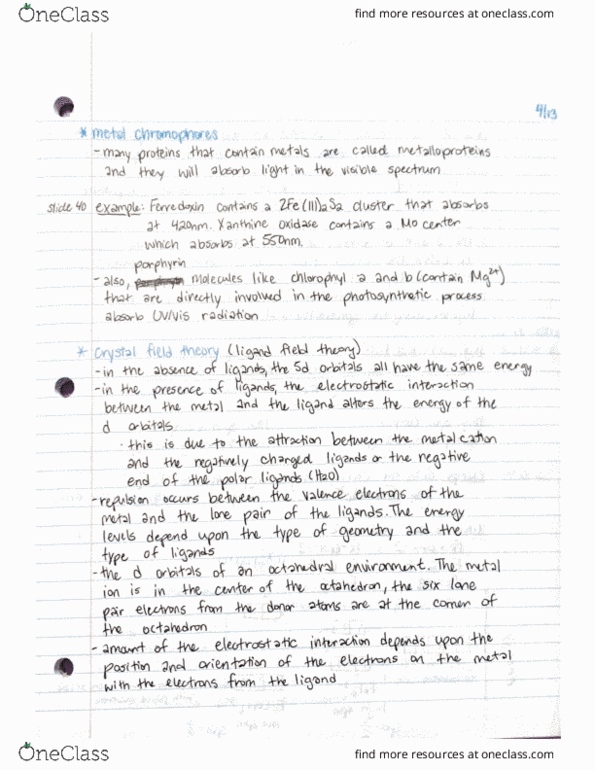 OneClass
find more resources at oneclass.com
4/13
* metal chromophores
- many proteins that contain metals are called metalloproteins
and they will absorb light in the visible spectrum
slide 40 example: Ferredoxin contains a 2Fe(III)2S2 cluster that absorbs
at 420nm. Xanthine oxidase contains a Mo center
which absorbs at 550nm.
porphyrin
- also, molecules like chlorophyl a and b (contain Mg2+)
that are directly involved in the photosynthetic process
absorb UV/Vis radiation
* Crystal field theory (ligand field theory)
- in the absence of ligands, the 5d orbitals all have the same energy
- in the presence of ligands, the electrostatic interaction
between the metal and the ligand alters the energy of the
d orbitals
· this is due to the attraction between the metal cation
and the negatively changed ligands or the negative
end of the polar ligands (H2O)
- repulsion occurs between the valence electrons of the
metal and the lone pair of the ligands. The energy
levels depend upon the type of geometry and the
type of ligands
- the d orbitals of an octahedral environment. The metal
ion is in the center of the octahedron, the six lone
pair electrons from the donor atoms are at the corner of
the octahedron
- amount of the electrostatic interaction depends upon the
position and orientation of the electrons on the metal
with the electrons from the ligand
OneClass
find more resources at oneclass.com